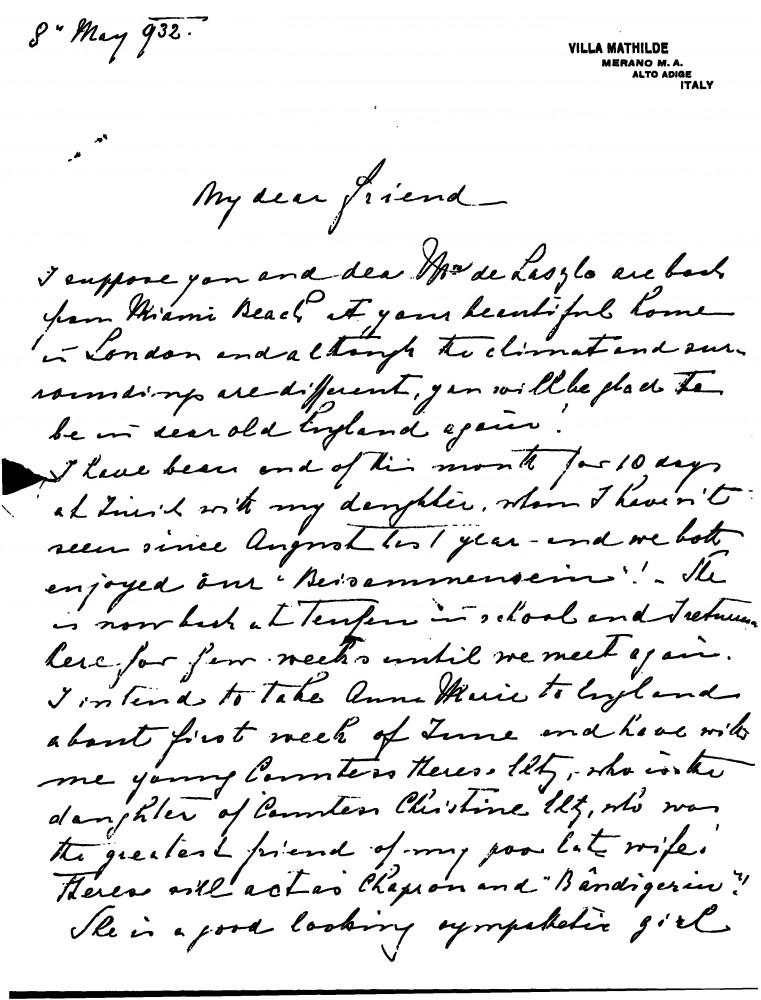 8" May 932.
VILLA MATHILDE
MERANO M. A.
ALTO ADIGE
ITALY
My dear friend
I suppose you and dea Mrs de Laszlo are back
from Miami Beach at your beautiful home
in London and although the climat and sur-
roundings are different, you will be glad to
be in dear old England again!
I have been end of this month for 10 days
at Zurich with my daughter, whom I haven't
seen since August last year - and we both
enjoyed our "Beisammensein"! - She
is now back at Teufen in school and I return
here for few weeks until we meet again.
I intend to take Anne Marie to England
about first week of June and have with
me young Countess Therese Eltz, who is the
daughter of Countess Christine Eltz, who was
the greatest friend of my poor late wife!
Therese will act as Chapron and "Bändigerin"!
She is a good looking sympathetic girl